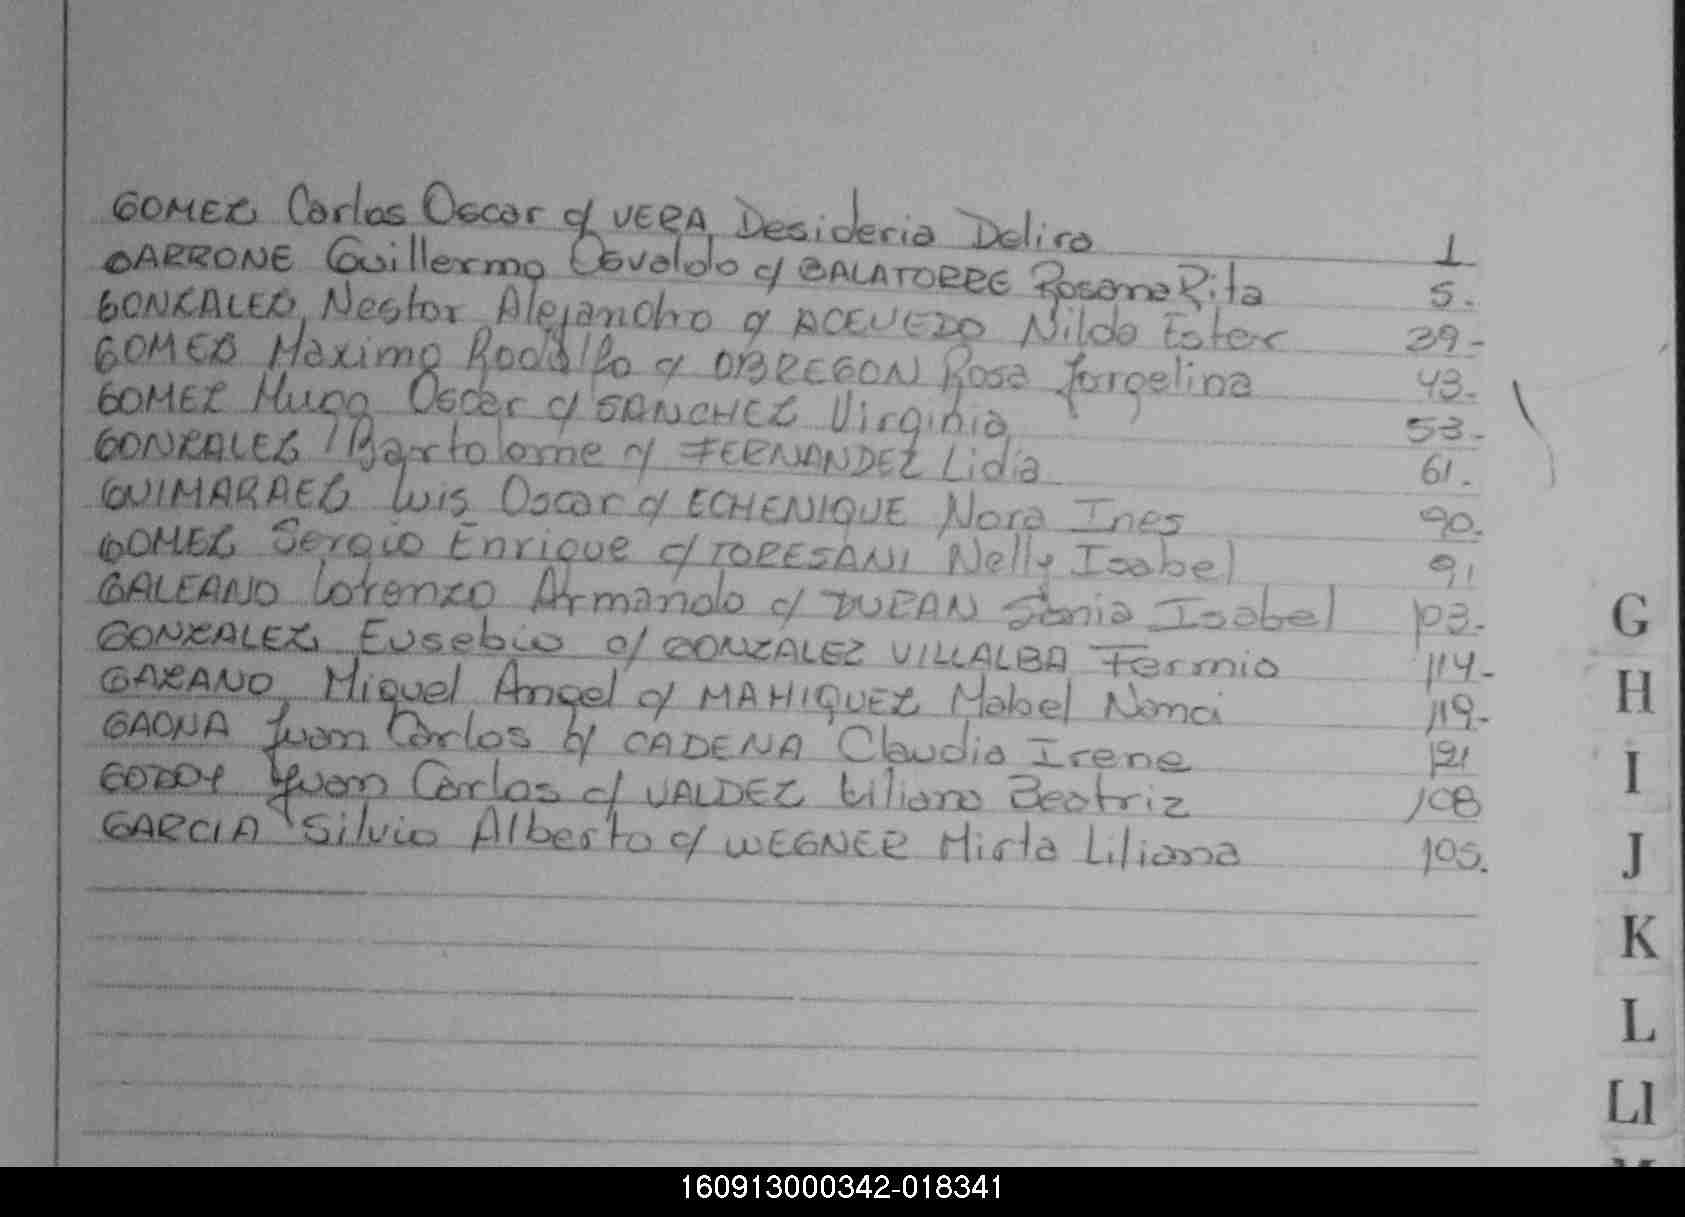 GOMEZ Carlos Oscar c/ VERA Desideria Delira 1
GARRONE Guillermo Osvaldo c/ BALATORRE Rosana Rita 5.
GONZALEZ Nestor Alejandro c/ ACEVEDO Nilda Ester 39-
GOMEZ Maximo Rodolfo c/ OBREGON Rosa Jorgelina 43.
GOMEZ Hugo Oscar c/ SANCHEZ Virginia 53-
GONZALEZ Bartolome c/ FERNANDEZ Lidia 61.
GUIMARAEZ Luis Oscar c/ ECHENIQUE Nora Ines 90.
GOMEZ Sergio Enrique c/ TORESANI Nelly Isabel 91
GALEANO Lorenzo Armando c/ DURAN Sonia Isabel 103-
GONZALEZ Eusebio c/ GONZALEZ VILLALBA Fermia 114-
GAZANO Miguel Angel c/ MAHIQUEZ Mabel Nanci 119-
GAONA Juan Carlos c/ CADENA Claudia Irene 121
GODOY Juan Carlos c/ VALDEZ Liliana Beatriz 108
GARCIA Silvio Alberto c/ WEGNER Mirta Liliana 105.
G
H
I
J
K
L
Ll
160913000342-018341